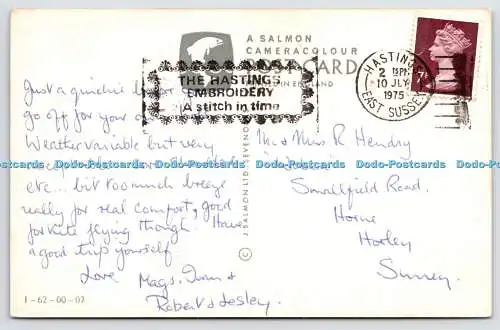 A SALMON
CAMERACOLOUR
POSTCARD
IN ENGLAND
THE HASTINGS
EMBROIDERY
A stitch in time
HASTINGS
2 PM
10 JLY
1975
EAST SUSSEX
Just a quickie before
go off for your
Weather variable but very
etc... but too much breeze
really for real comfort, good
for kite flying though. Have
a good trip yourself
Love
Mags,
Robert & Lesley.
Mr & Mrs R Hendry
Smallfield Road.
Horne
Horley
Surrey.
J. SALMON LTD SEVENO
©
1-62-00-07
Dodo-Postcards Dodo-Postcards Dodo-Postcards Dodo-Postcards Dodo-Postcards